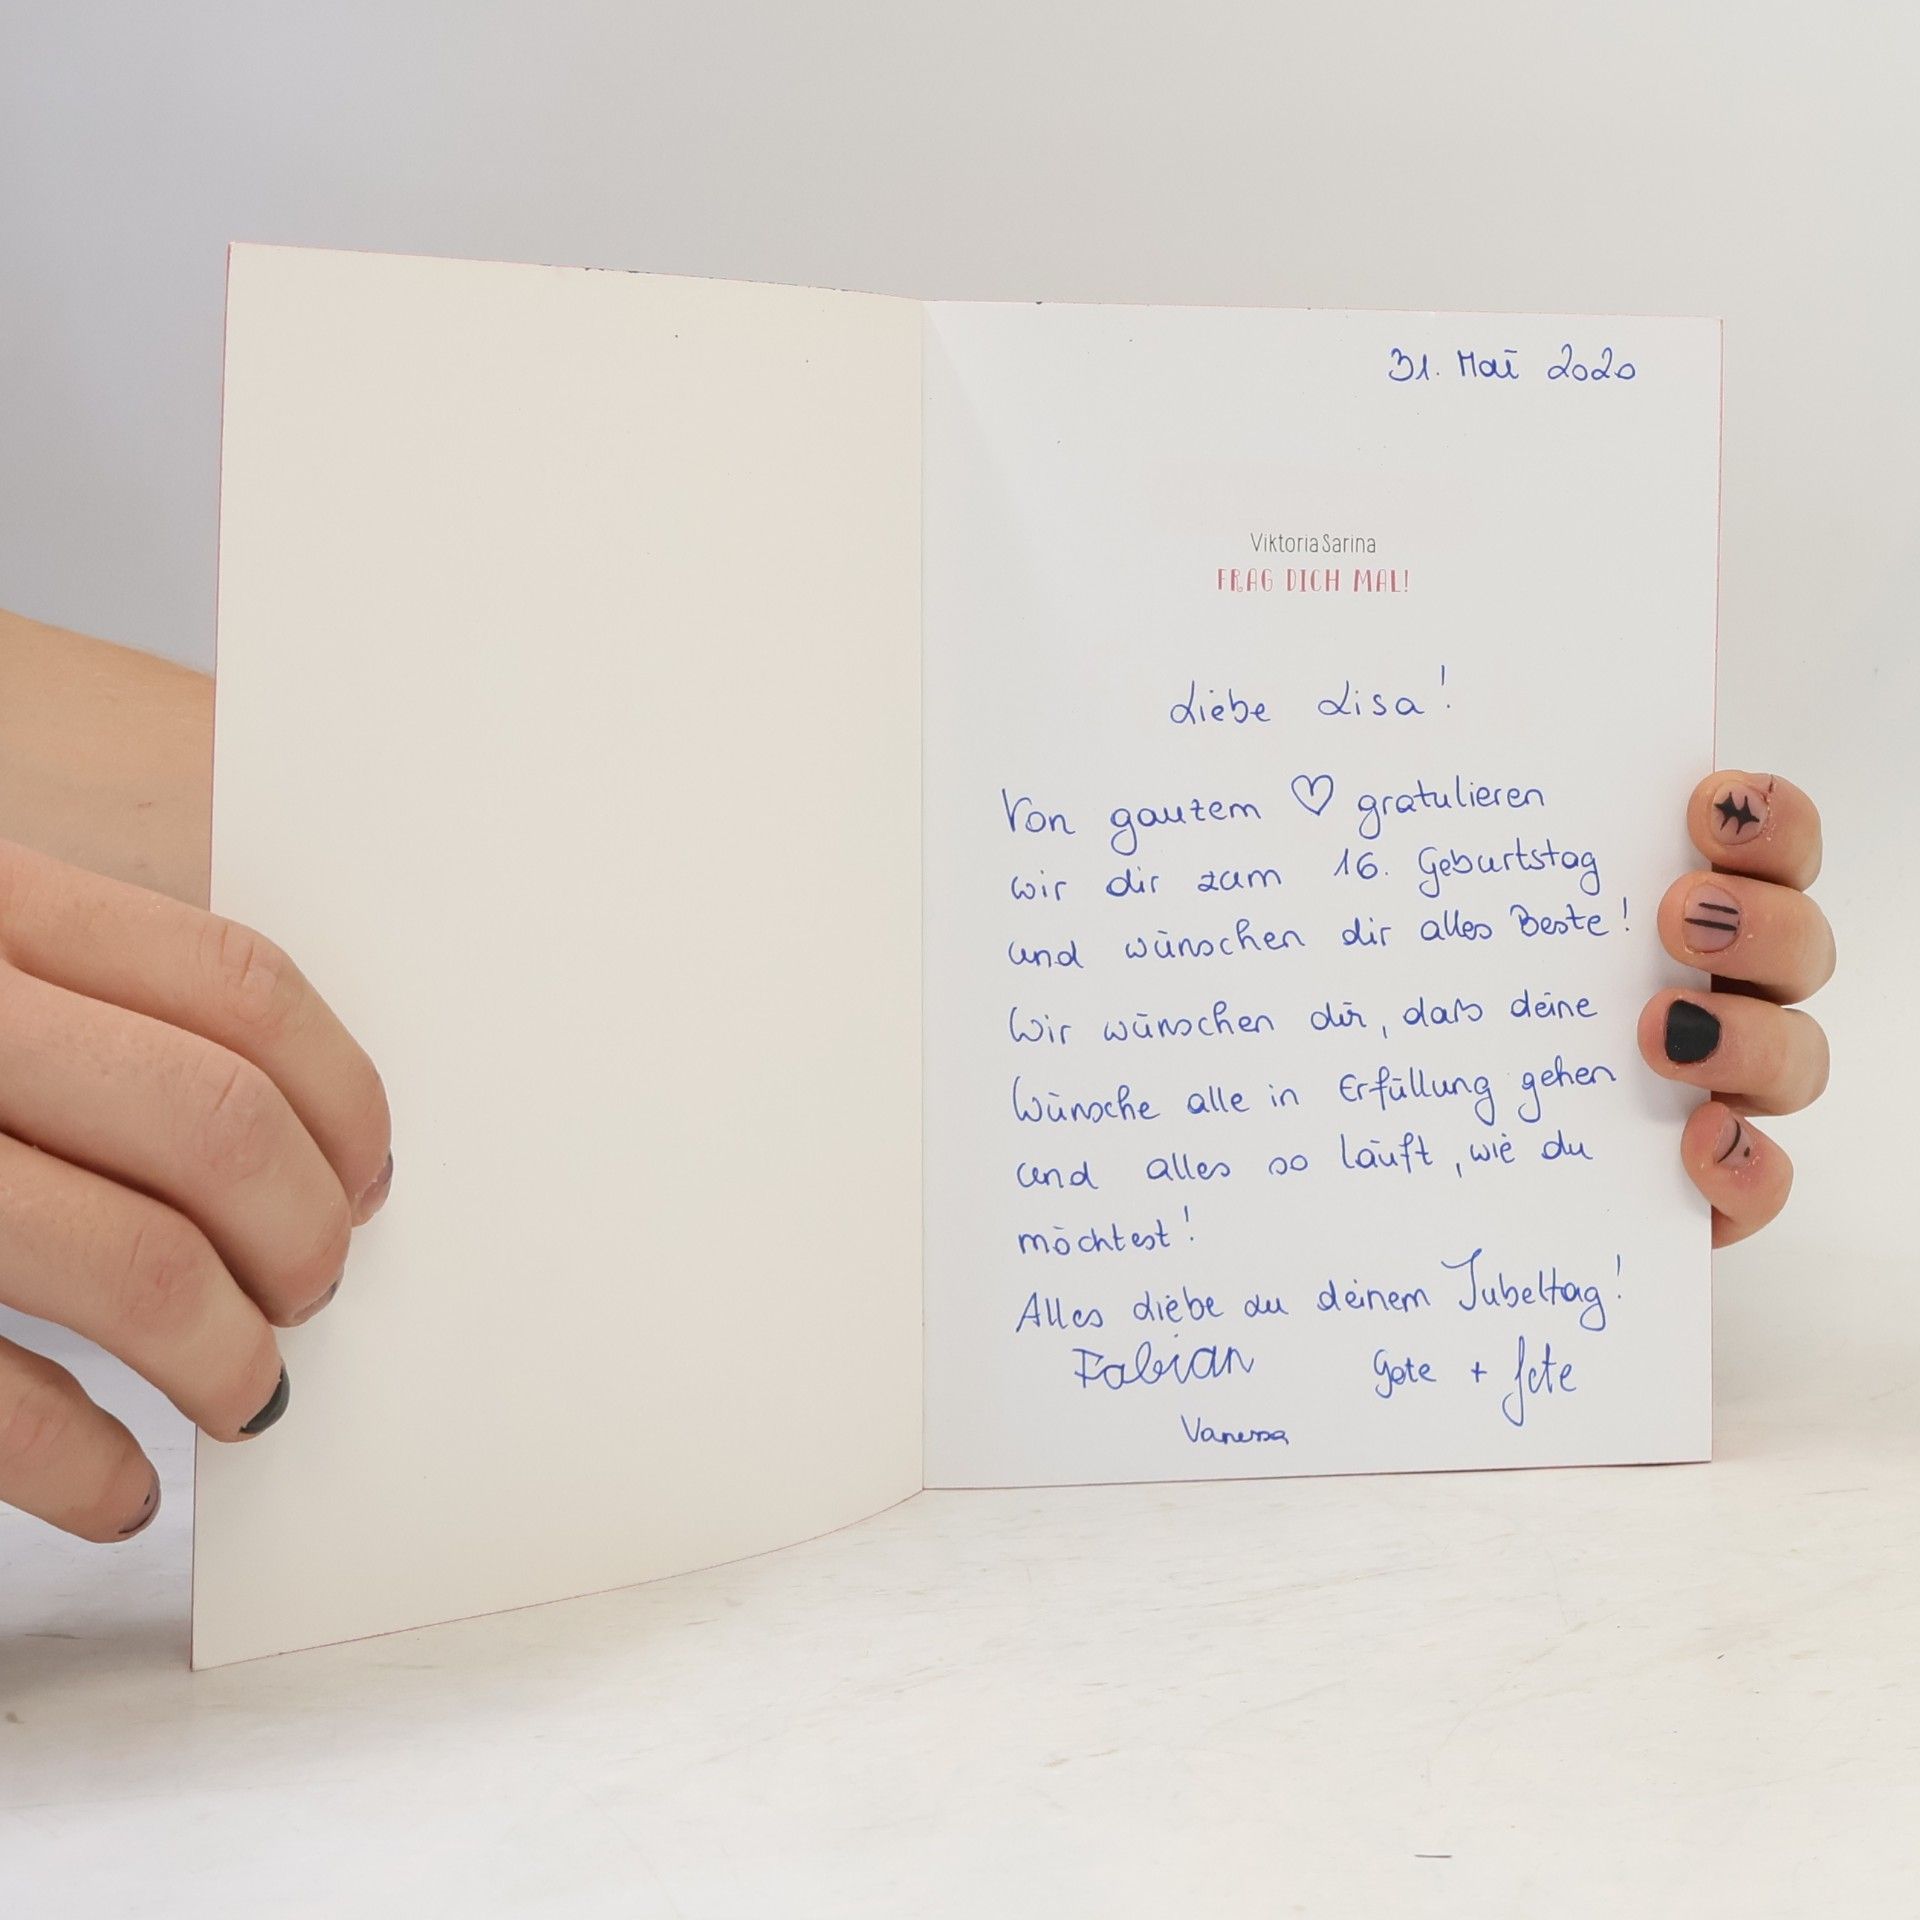 31. Mai 2020
ViktoriaSarina
FRAG DICH MAL!
Liebe Lisa!
Von ganzem ♡ gratulieren
wir dir zum 16. Geburtstag
und wünschen dir alles Beste!
Wir wünschen dir, daß deine
Wünsche alle in Erfüllung gehen
und alles so läuft, wie du
möchtest!
Alles Liebe zu deinem Jubeltag!
Fabian Gote +
Vanessa